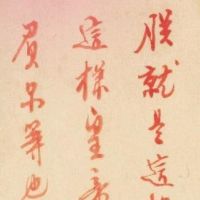 朕就是這
這樣皇帝
負尔等也